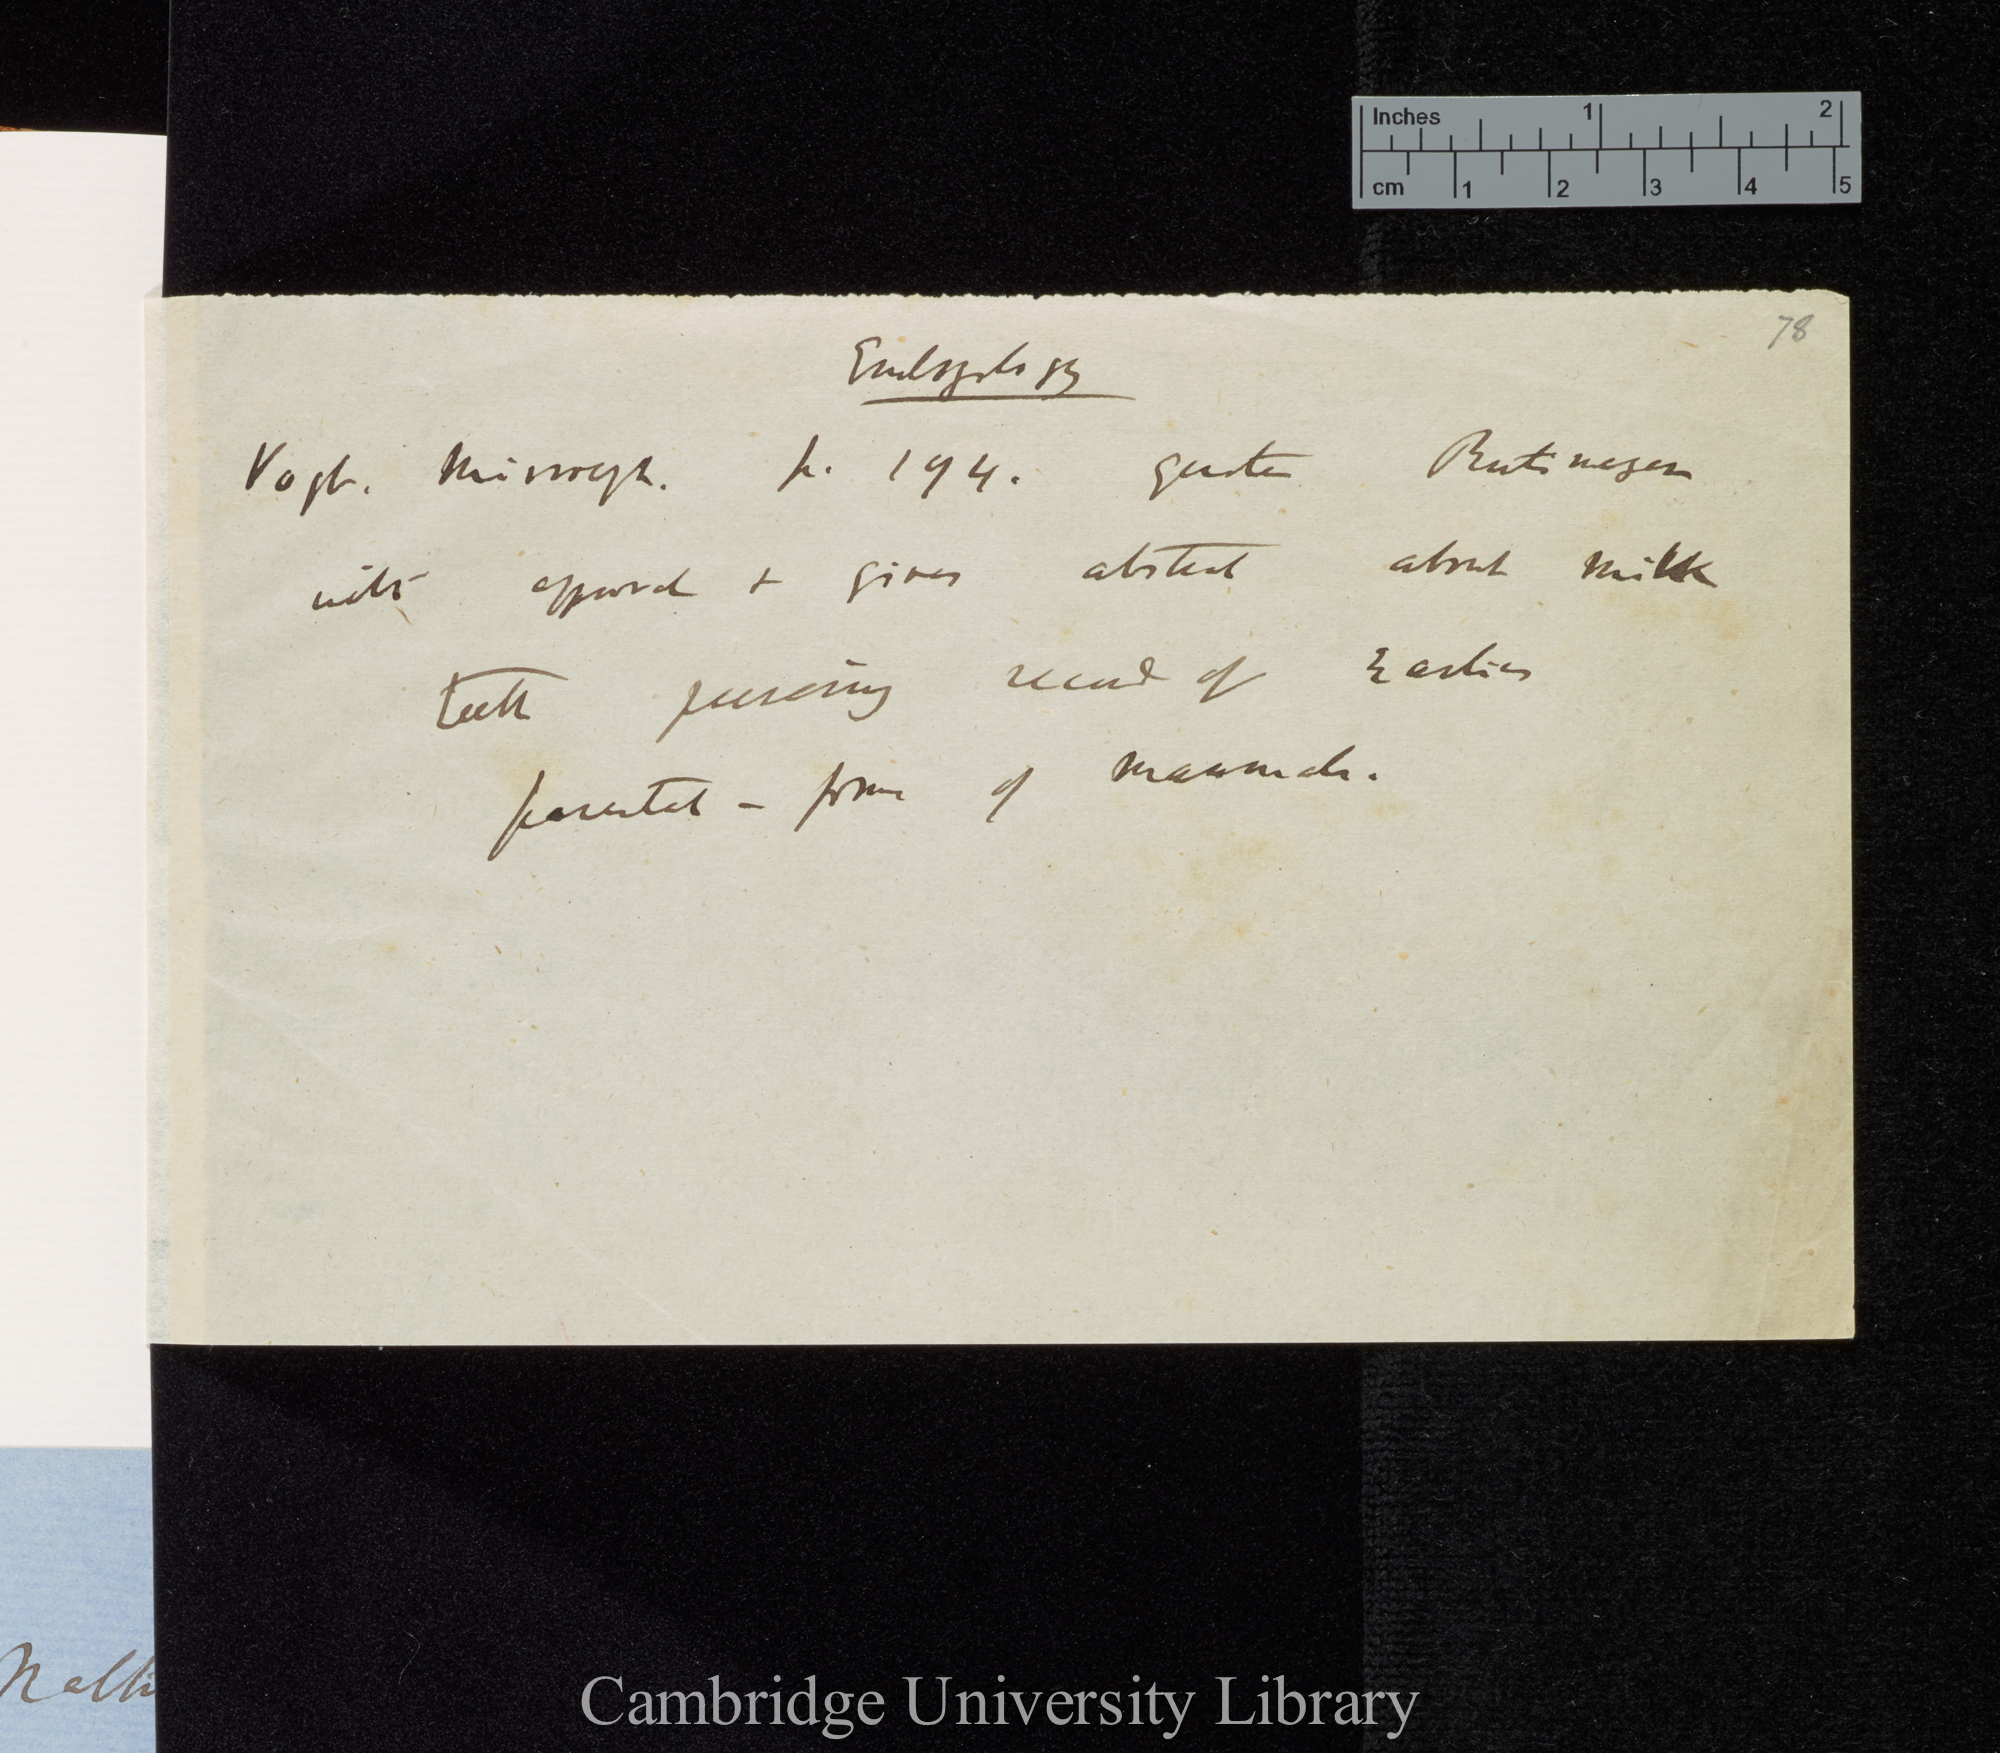 78
Embryology
Vogt. Microceph. p. 194. quotes Rutimeyer
with approval & gives abstract about milk
teeth preserving record of Earlier
parental - form of mammals.
Inches 1 2
cm 1 2 3 4 5
Cambridge University Library